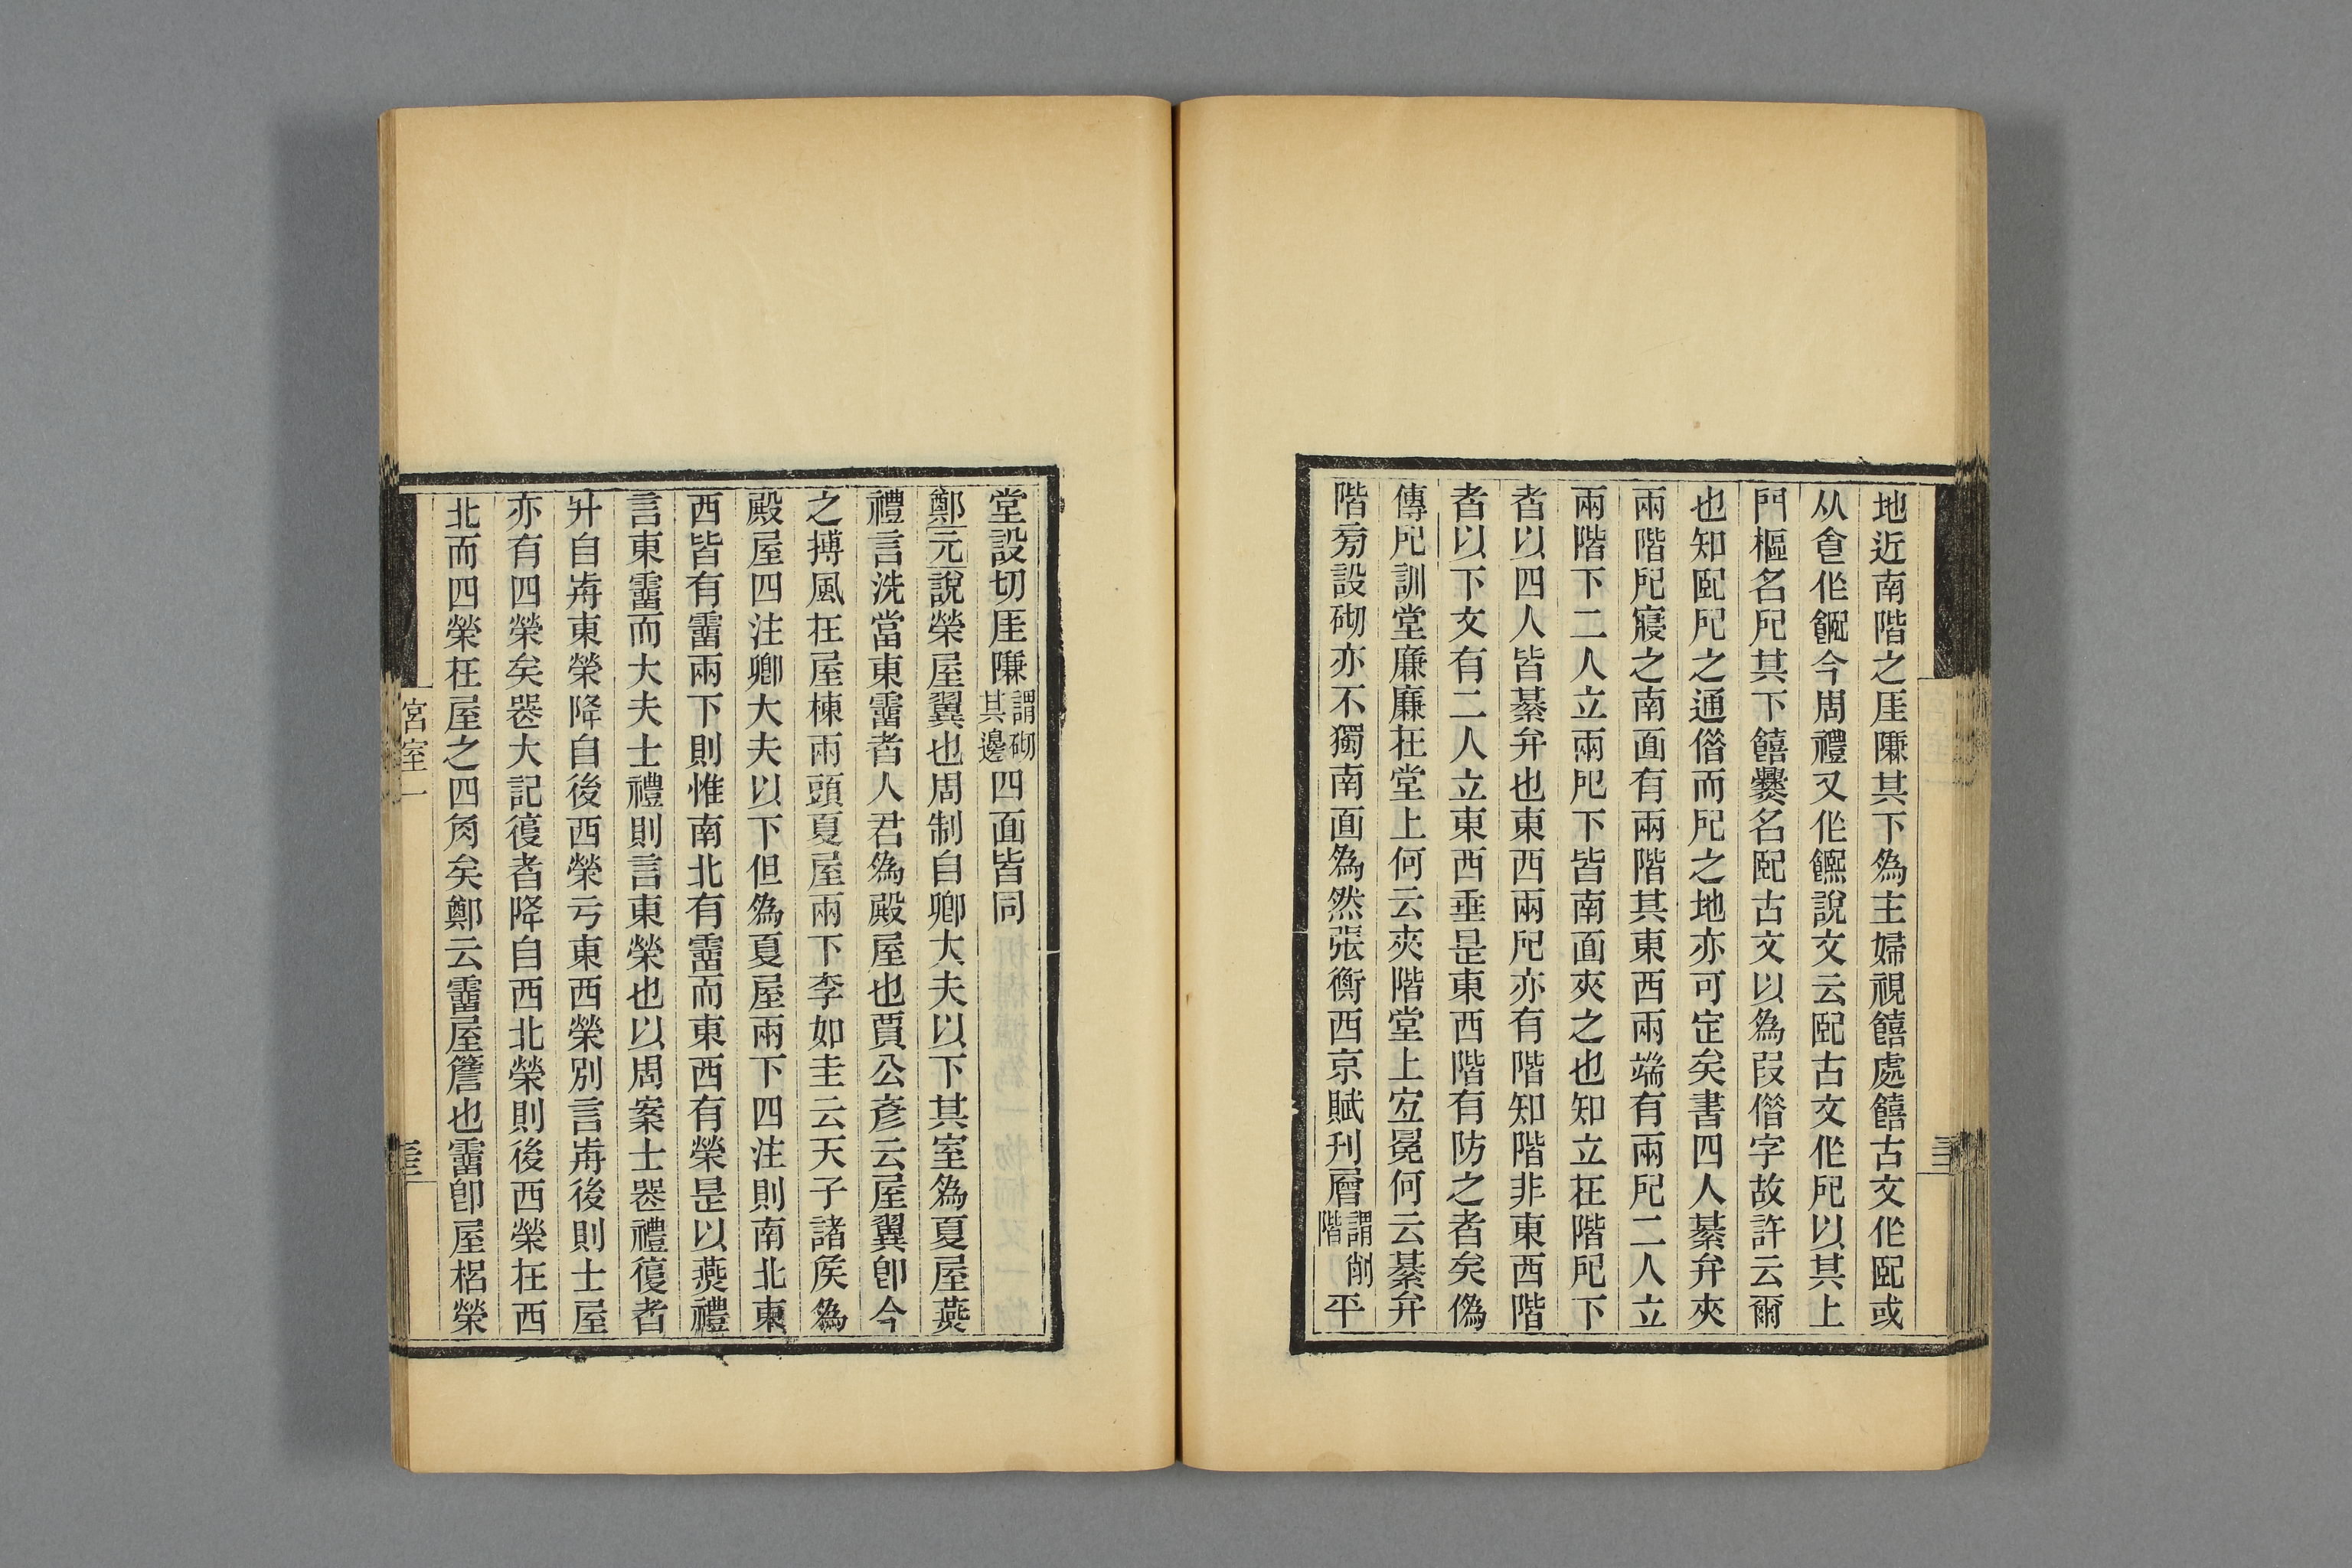 地近南階之厓隒其下爲主婦視饎處饎古文作𩰿或
从𠊊作䬣今周禮又作䭒說文云𤋮古文作戺以其上
門樞名戺其下饎爨名𤋮古文以爲叚偝字故許云爾
也知𤋮戺之通偝而戺之地亦可定矣書四人綦弁夾
兩階戺寢之南面有兩階其東西兩端有兩戺二人立
兩階下二人立兩戺下皆南面夾之也知立在階戺下
者以四人皆綦弁也東西兩戺亦有階知階非東西階
者以下文有二人立東西垂是東西階有防之者矣僞
傳戺訓堂廉廉在堂上何云夾階堂上宜冕何云綦弁
階旁設砌亦不獨南面爲然張衡西京賦刊層謂削階平
堂設切厓隒謂砌其邊四面皆同
鄭元說榮屋翼也周制自卿大夫以下其室爲夏屋燕
禮言洗當東霤者人君爲殿屋也賈公彥云屋翼卽今
之搏風在屋棟兩頭夏屋兩下李如圭云天子諸侯爲
殿屋四注卿大夫以下但爲夏屋兩下四注則南北東
西皆有霤兩下則惟南北有霤而東西有榮是以燕禮
言東霤而大夫士禮則言東榮也以周案士喪禮復者
升自歬東榮降自後西榮亏東西榮別言歬後則士屋
亦有四榮矣喪大記復者降自西北榮則後西榮在西
北而四榮在屋之四角矣鄭云霤屋簷也霤卽屋梠榮
宮室一